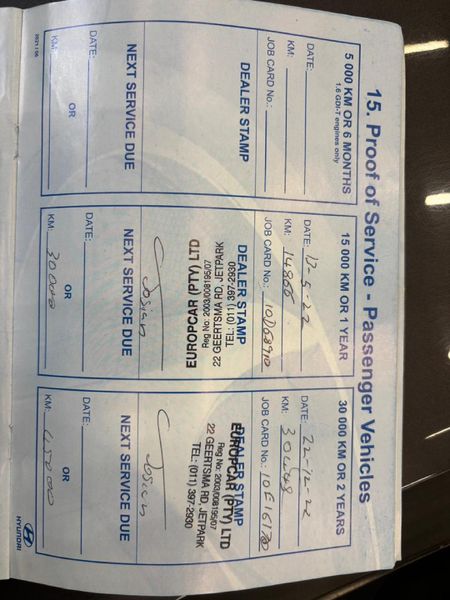 15. Proof of Service - Passenger Vehicles
5 000 KM OR 6 MONTHS
1.6 GDI-T engines only
DATE:
KM:
JOB CARD No.:
DEALER STAMP
NEXT SERVICE DUE
DATE:
OR
KM:
15 000 KM OR 1 YEAR
DATE: 12-5-22
KM: 14866
JOB CARD No.:
DEALER STAMP
TEL: (011) 397-2930
22 GEERTSMA RD, JETPARK
Reg No: 2003/008195/07
EUROPCAR (PTY) LTD
Josian
NEXT SERVICE DUE
DATE:
OR
KM: 30 000
30 000 KM OR 2 YEARS
DATE: 22-12-22
KM:
JOB CARD No.:
DEALER STAMP
EUROPCAR (PTY) LTD
Reg No: 2003/008195/07
22 GEERTSMA RD, JETPARK
TEL: (011) 397-2930
Josian
NEXT SERVICE DUE
DATE:
OR
KM: 45 0000
2021 / 06
HYUNDAI